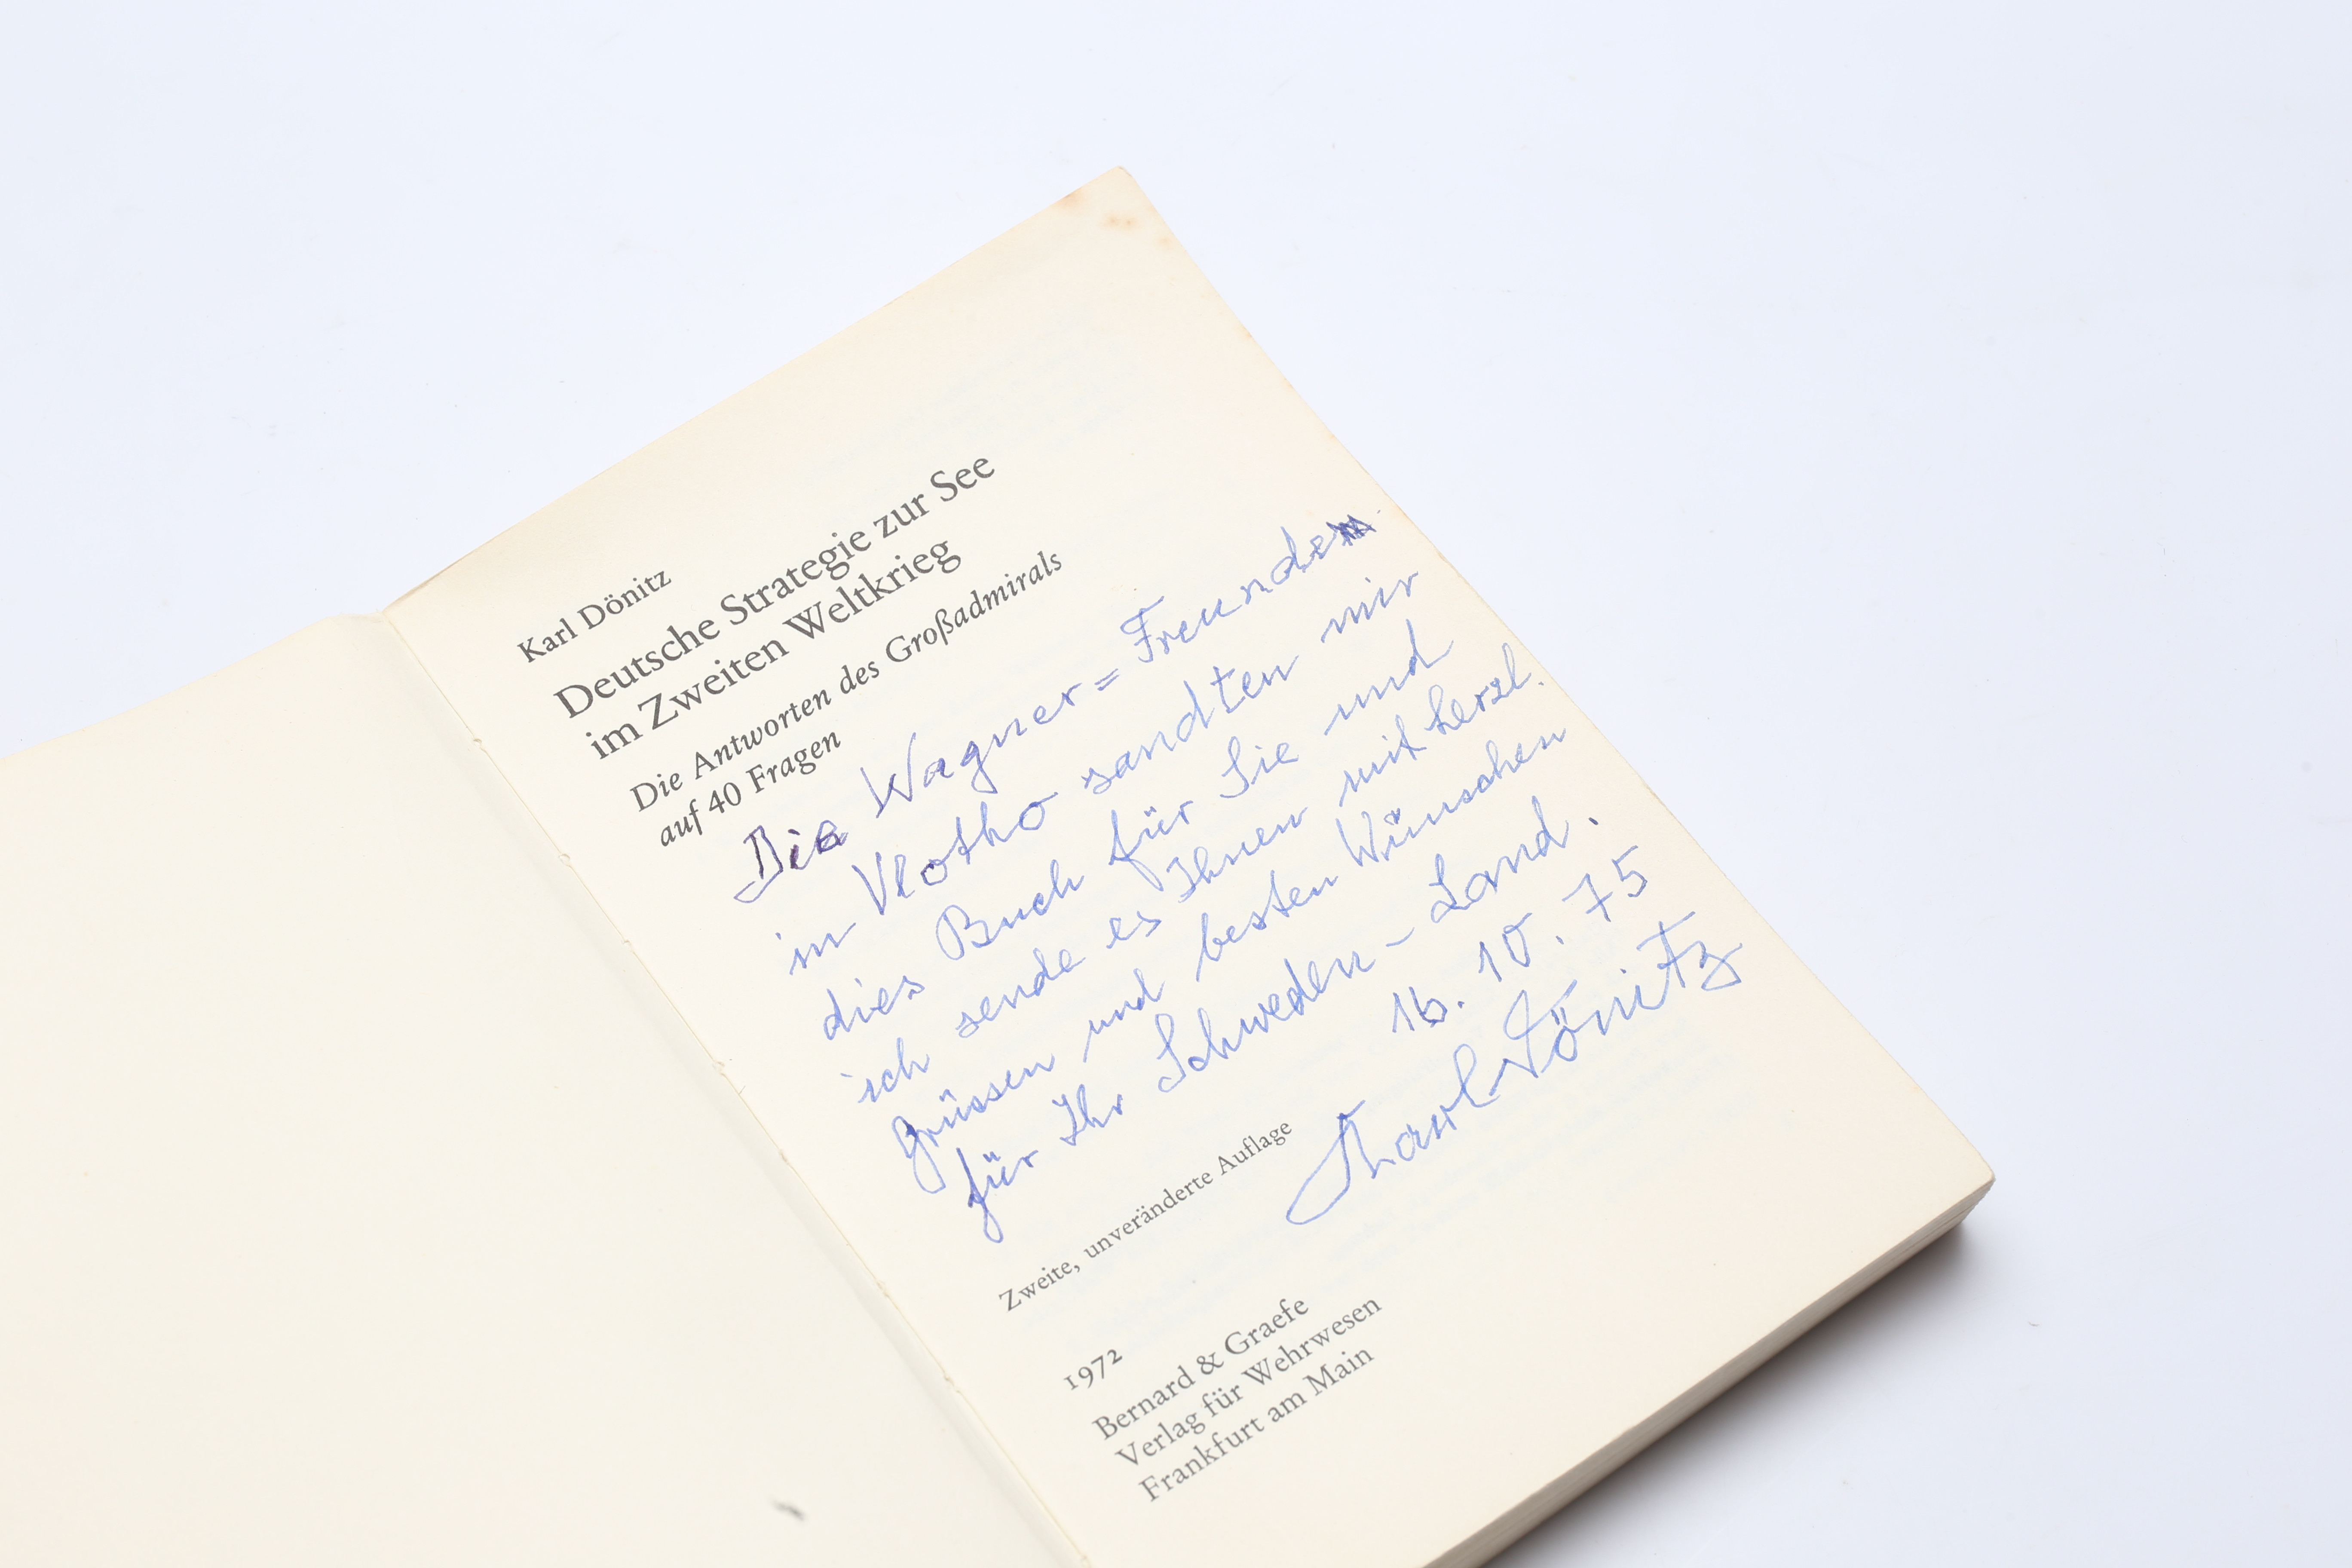 Karl Dönitz
Deutsche Strategie zur See
im Zweiten Weltkrieg
Die Antworten des Großadmirals
auf 40 Fragen
Die Wagner= Freunde
in Vlotho sandten mir
dies Buch für Sie und
ich sende es Ihnen mit herzl.
Grüssen und besten Wünschen
für Ihr Schweden-Land.
16. 10. 75
Karl Dönitz
Zweite, unveränderte Auflage
1972
Bernard & Graefe
Verlag für Wehrwesen
Frankfurt am Main